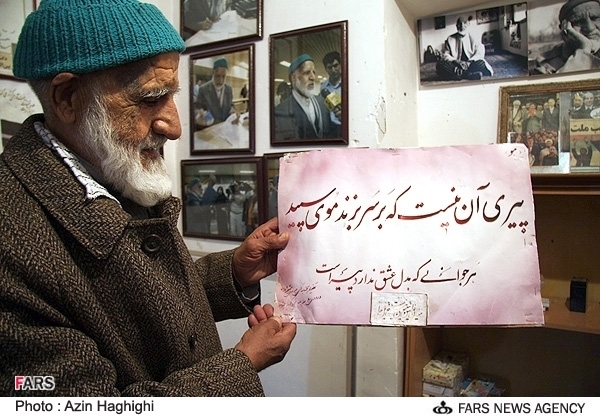 هو
پیری آن نیست که بر سر بزند موی سپید
هر جوانی که بدل عشق ندارد پیر است
ملت
AGENCY
FARS
Photo : Azin Haghighi
FARS NEWS AGENCY